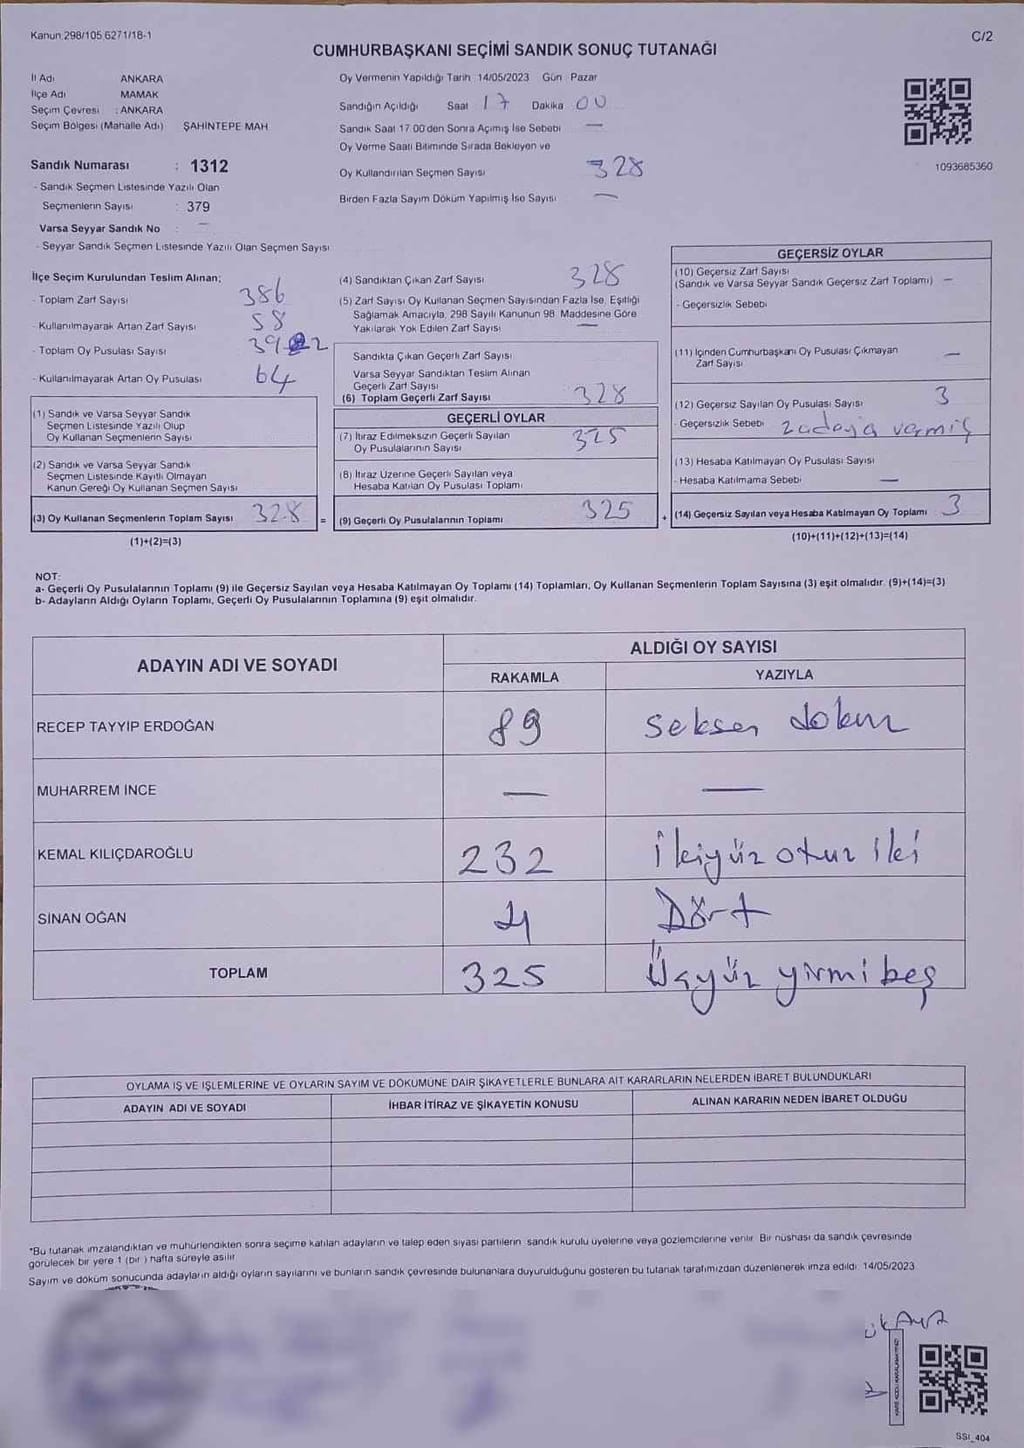 Kanun 298/105 6271/18-1
C/2
CUMHURBAŞKANI SEÇİMİ SANDIK SONUÇ TUTANAĞI
İl Adı ANKARA
İlçe Adı MAMAK
Seçim Çevresi : ANKARA
Seçim Bölgesi (Mahalle Adı) ŞAHİNTEPE MAH
Sandık Numarası : 1312
- Sandık Seçmen Listesinde Yazılı Olan
Seçmenlerin Sayısı : 379
Varsa Seyyar Sandık No : —
- Seyyar Sandık Seçmen Listesinde Yazılı Olan Seçmen Sayısı
Oy Vermenin Yapıldığı Tarih 14/05/2023 Gün Pazar
Sandığın Açıldığı Saat 17 Dakika 00
Sandık Saat 17 00'den Sonra Açımış İse Sebebi —
Oy Verme Saati Bitiminde Sırada Bekleyen ve
Oy Kullandırılan Seçmen Sayısı 328
Birden Fazla Sayım Döküm Yapılmış İse Sayısı —
1093685360
İlçe Seçim Kurulundan Teslim Alınan;
- Toplam Zarf Sayısı 386
- Kullanılmayarak Artan Zarf Sayısı 58
- Toplam Oy Pusulası Sayısı 392
- Kullanılmayarak Artan Oy Pusulası 64
(1) Sandık ve Varsa Seyyar Sandık
Seçmen Listesinde Yazılı Olup
Oy Kullanan Seçmenlerin Sayısı
(2) Sandık ve Varsa Seyyar Sandık
Seçmen Listesinde Kayıtlı Olmayan
Kanun Gereği Oy Kullanan Seçmen Sayısı
(3) Oy Kullanan Seçmenlerin Toplam Sayısı 328 =
(1)+(2)=(3)
(4) Sandıktan Çıkan Zarf Sayısı 328
(5) Zarf Sayısı Oy Kullanan Seçmen Sayısından Fazla İse, Eşitliği
Sağlamak Amacıyla, 298 Sayılı Kanunun 98. Maddesine Göre
Yakılarak Yok Edilen Zarf Sayısı —
Sandıkta Çıkan Geçerli Zarf Sayısı
Varsa Seyyar Sandıktan Teslim Alınan
Geçerli Zarf Sayısı
(6) Toplam Geçerli Zarf Sayısı 328
GEÇERLİ OYLAR
(7) İtiraz Edilmeksizin Geçerli Sayılan
Oy Pusulalarının Sayısı 325
(8) İtiraz Üzerine Geçerli Sayılan veya
Hesaba Katılan Oy Pusulası Toplamı
(9) Geçerli Oy Pusulalarının Toplamı 325 +
GEÇERSİZ OYLAR
(10) Geçersiz Zarf Sayısı
(Sandık ve Varsa Seyyar Sandık Geçersiz Zarf Toplamı) —
- Geçersizlik Sebebi
(11) İçinden Cumhurbaşkanı Oy Pusulası Çıkmayan
Zarf Sayısı —
(12) Geçersiz Sayılan Oy Pusulası Sayısı 3
- Geçersizlik Sebebi 2 adaya vermiş
(13) Hesaba Katılmayan Oy Pusulası Sayısı
- Hesaba Katılmama Sebebi —
(14) Geçersiz Sayılan veya Hesaba Katılmayan Oy Toplamı 3
(10)+(11)+(12)+(13)=(14)
NOT:
a- Geçerli Oy Pusulalarının Toplamı (9) ile Geçersiz Sayılan veya Hesaba Katılmayan Oy Toplamı (14) Toplamları, Oy Kullanan Seçmenlerin Toplam Sayısına (3) eşit olmalıdır. (9)+(14)=(3)
b- Adayların Aldığı Oyların Toplamı, Geçerli Oy Pusulalarının Toplamına (9) eşit olmalıdır.
ADAYIN ADI VE SOYADI
ALDIĞI OY SAYISI
RAKAMLA YAZIYLA
RECEP TAYYİP ERDOĞAN 89 seksen dokuz
MUHARREM İNCE — —
KEMAL KILIÇDAROĞLU 232 ikiyüz otuz iki
SİNAN OĞAN 4 Dört
TOPLAM 325 Üçyüz yirmi beş
OYLAMA İŞ VE İŞLEMLERİNE VE OYLARIN SAYIM VE DÖKÜMÜNE DAİR ŞİKAYETLERLE BUNLARA AİT KARARLARIN NELERDEN İBARET BULUNDUKLARI
ADAYIN ADI VE SOYADI İHBAR İTİRAZ VE ŞİKAYETİN KONUSU ALINAN KARARIN NEDEN İBARET OLDUĞU
*Bu tutanak imzalandıktan ve mühürlendikten sonra seçime katılan adayların ve talep eden siyasi partilerin sandık kurulu üyelerine veya gözlemcilerine verilir. Bir nüshası da sandık çevresinde
görülecek bir yere 1 (bir) hafta süreyle asılır.
Sayım ve döküm sonucunda adayların aldığı oyların sayılarını ve bunların sandık çevresinde bulunanlara duyurulduğunu gösteren bu tutanak tarafımızdan düzenlenerek imza edildi. 14/05/2023
KARE KODU KARALAMAYINIZ
SSI_404